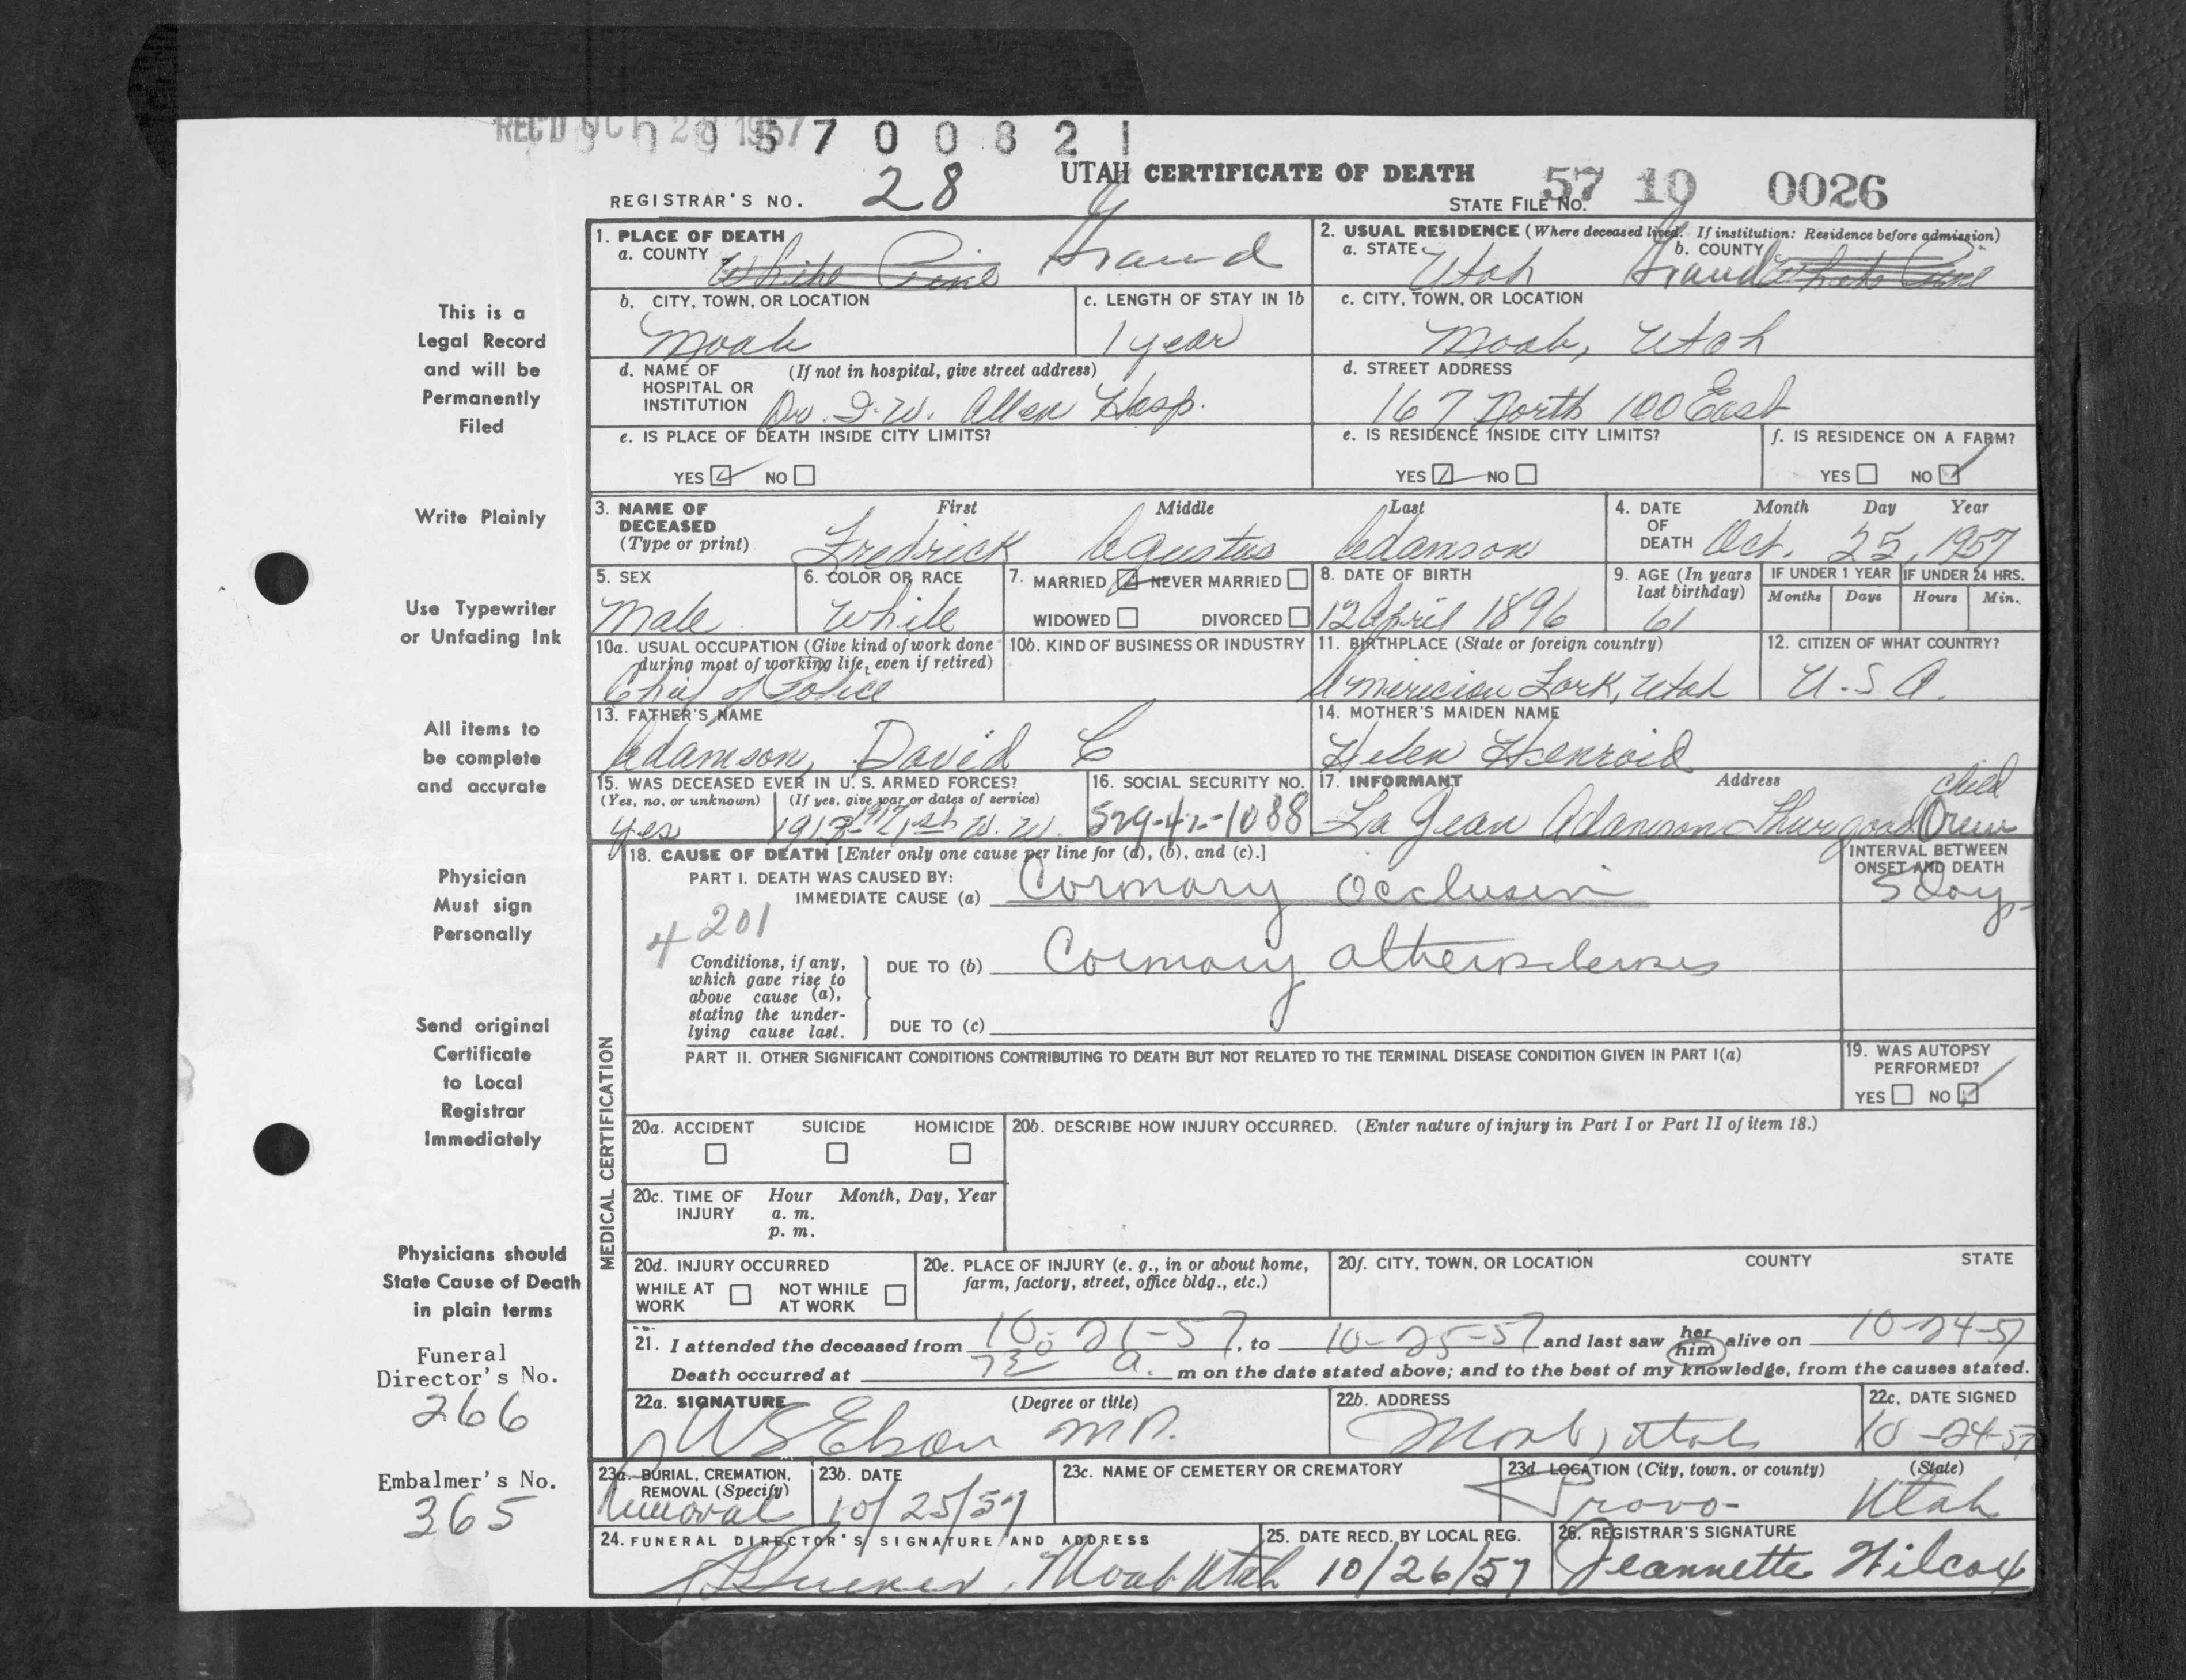 REC'D OCT 28 1957
5 7 0 0 8 2 1
UTAH CERTIFICATE OF DEATH
REGISTRAR'S NO. 28
STATE FILE NO. 57 10 0026
This is a
Legal Record
and will be
Permanently
Filed
Write Plainly
Use Typewriter
or Unfading Ink
All items to
be complete
and accurate
Physician
Must sign
Personally
Send original
Certificate
to Local
Registrar
Immediately
Physicians should
State Cause of Death
in plain terms
Funeral
Director's No.
266
Embalmer's No.
365
1. PLACE OF DEATH
a. COUNTY White Pine Grand
2. USUAL RESIDENCE (Where deceased lived. If institution: Residence before admission)
a. STATE Utah b. COUNTY Grand White Pine
b. CITY, TOWN, OR LOCATION
Moab
c. LENGTH OF STAY IN 1b
1 year
c. CITY, TOWN, OR LOCATION
Moab, Utah
d. NAME OF (If not in hospital, give street address)
HOSPITAL OR
INSTITUTION Dr. I. W. Allen Hosp.
d. STREET ADDRESS
167 North 100 East
e. IS PLACE OF DEATH INSIDE CITY LIMITS?
YES NO
e. IS RESIDENCE INSIDE CITY LIMITS?
YES NO
f. IS RESIDENCE ON A FARM?
YES NO
3. NAME OF First Middle Last
DECEASED
(Type or print) Fredrick Agustus Adamson
4. DATE Month Day Year
OF
DEATH Oct. 25, 1957
5. SEX
Male
6. COLOR OR RACE
White
7. MARRIED NEVER MARRIED
WIDOWED DIVORCED
8. DATE OF BIRTH
12 April 1896
9. AGE (In years
last birthday)
61
IF UNDER 1 YEAR IF UNDER 24 HRS.
Months Days Hours Min.
10a. USUAL OCCUPATION (Give kind of work done
during most of working life, even if retired)
Chief of Police
10b. KIND OF BUSINESS OR INDUSTRY
11. BIRTHPLACE (State or foreign country)
Americian Fork, Utah
12. CITIZEN OF WHAT COUNTRY?
U.S.A.
13. FATHER'S NAME
Adamson, David C
14. MOTHER'S MAIDEN NAME
Helen Henroid
15. WAS DECEASED EVER IN U. S. ARMED FORCES?
(Yes, no, or unknown) (If yes, give war or dates of service)
yes 1st W. W.
16. SOCIAL SECURITY NO.
529-42-1088
17. INFORMANT Address
child
La Jean Adamson Thurgood Orem
MEDICAL CERTIFICATION
18. CAUSE OF DEATH [Enter only one cause per line for (a), (b), and (c).]
INTERVAL BETWEEN
ONSET AND DEATH
PART I. DEATH WAS CAUSED BY:
IMMEDIATE CAUSE (a) Coronary Occlusion
5 days
4201
Conditions, if any,
which gave rise to
above cause (a),
stating the under-
lying cause last.
DUE TO (b) Coronary atherosclerosis
DUE TO (c)
PART II. OTHER SIGNIFICANT CONDITIONS CONTRIBUTING TO DEATH BUT NOT RELATED TO THE TERMINAL DISEASE CONDITION GIVEN IN PART I(a)
19. WAS AUTOPSY
PERFORMED?
YES NO
20a. ACCIDENT SUICIDE HOMICIDE
20b. DESCRIBE HOW INJURY OCCURRED. (Enter nature of injury in Part I or Part II of item 18.)
20c. TIME OF Hour Month, Day, Year
INJURY a. m.
p. m.
20d. INJURY OCCURRED
WHILE AT NOT WHILE
WORK AT WORK
20e. PLACE OF INJURY (e. g., in or about home,
farm, factory, street, office bldg., etc.)
20f. CITY, TOWN, OR LOCATION COUNTY STATE
21. I attended the deceased from 10-21-57, to 10-25-57 and last saw her him alive on 10-24-57
Death occurred at 7 30 a. m on the date stated above; and to the best of my knowledge, from the causes stated.
22a. SIGNATURE (Degree or title)
M.D.
22b. ADDRESS
Moab, Utah
22c. DATE SIGNED
10-24-57
23a. BURIAL, CREMATION,
REMOVAL (Specify)
Removal
23b. DATE
10/25/57
23c. NAME OF CEMETERY OR CREMATORY
23d. LOCATION (City, town, or county) (State)
Provo- Utah
24. FUNERAL DIRECTOR'S SIGNATURE AND ADDRESS
Moab Utah
25. DATE RECD. BY LOCAL REG.
10/26/57
26. REGISTRAR'S SIGNATURE
Jeannette Wilcox